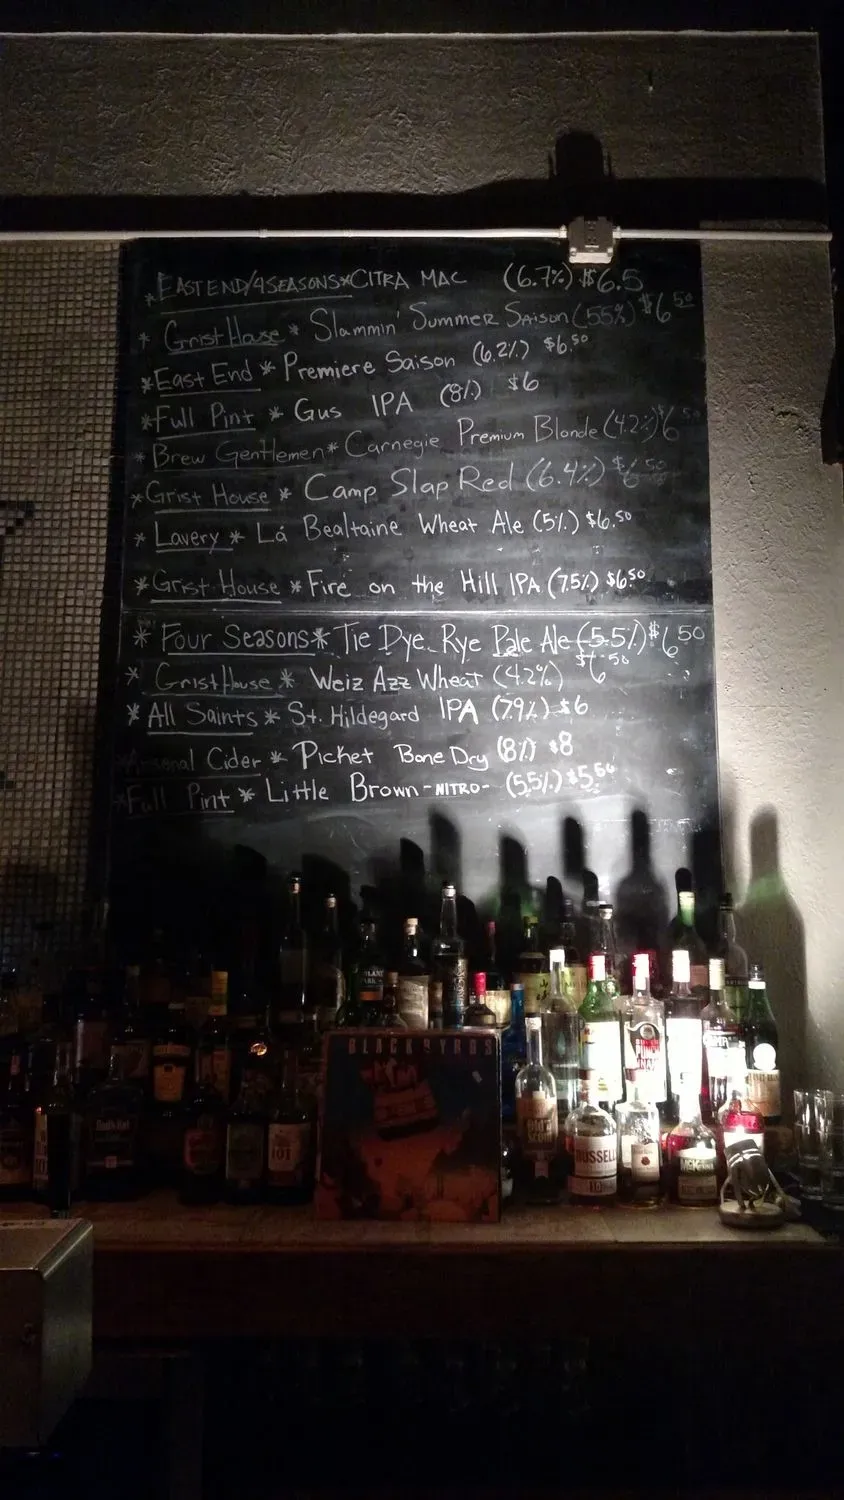 * EAST END/4SEASONS * CITRA MAC (6.7%) $6.5
* Grist House * Slammin' Summer Saison (5.5%) $6.50
* East End * Premiere Saison (6.2%) $6.50
* Full Pint * Gus IPA (8%) $6
* Brew Gentlemen * Carnegie Premium Blonde (4.2%) $6.50
* Grist House * Camp Slap Red (6.4%) $6.50
* Lavery * Lá Bealtaine Wheat Ale (5%) $6.50
* Grist House * Fire on the Hill IPA (7.5%) $6.50
* Four Seasons * Tie Dye Rye Pale Ale (5.5%) $6.50
* Grist House * Weiz Azz Wheat (4.2%) $6.50
* All Saints * St. Hildegard IPA (7.9%) $6
* Arsenal Cider * Picket Bone Dry (8%) $8
* Full Pint * Little Brown -NITRO- (5.5%) $5.50
BLACKBYRDS
RUSSELL
101